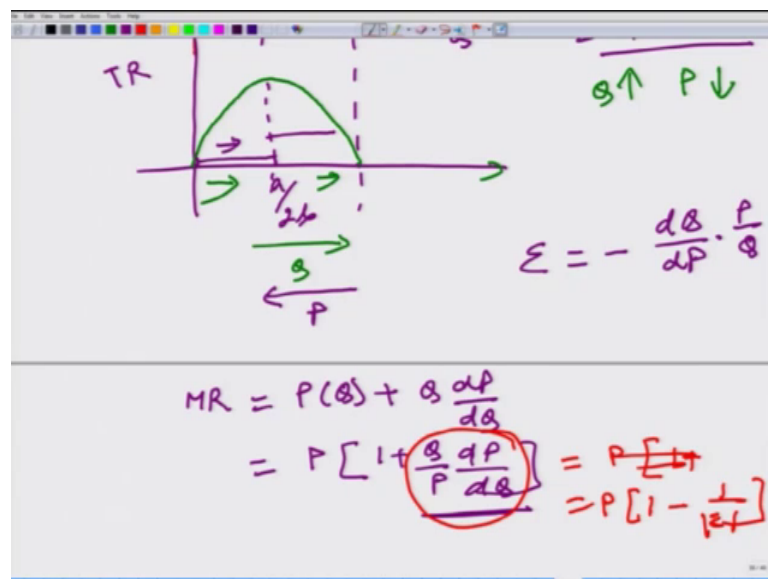 TR
Q↑ P↓
a/2b
Q
P
ε = - dQ/dP · P/Q
MR = P(Q) + Q dP/dQ
= P [ 1 + Q/P dP/dQ ] = P [ 1 +
= P [ 1 - 1/|ε| ]